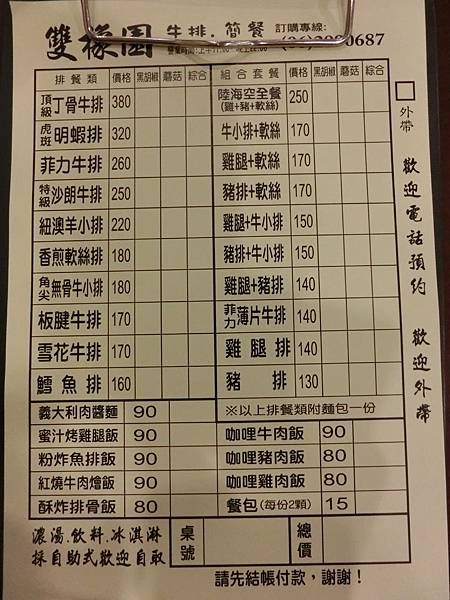 雙橡園 牛排.簡餐 訂購專線:
排餐類 價格 黑胡椒 蘑菇 綜合 組合套餐 價格 黑胡椒 蘑菇 綜合
頂級丁骨牛排 380 陸海空全餐(雞+豬+軟絲) 250
虎斑明蝦排 320 牛小排+軟絲 170
菲力牛排 260 雞腿+軟絲 170
特級沙朗牛排 250 豬排+軟絲 170
紐澳羊小排 220 雞腿+牛小排 150
香煎軟絲排 180 豬排+牛小排 150
角尖無骨牛小排 180 雞腿+豬排 140
板腱牛排 170 菲力薄片牛排 140
雪花牛排 170 雞腿排 140
鱈魚排 160 豬排 130
義大利肉醬麵 90 ※以上排餐類附麵包一份
蜜汁烤雞腿飯 90 咖哩牛肉飯 90
粉炸魚排飯 90 咖哩豬肉飯 80
紅燒牛肉燴飯 90 咖哩雞肉飯 80
酥炸排骨飯 80 餐包(每份2顆) 15
濃湯.飲料.冰淇淋
採自助式歡迎自取
桌號 總價
請先結帳付款，謝謝！
外帶
歡迎電話預約 歡迎外帶